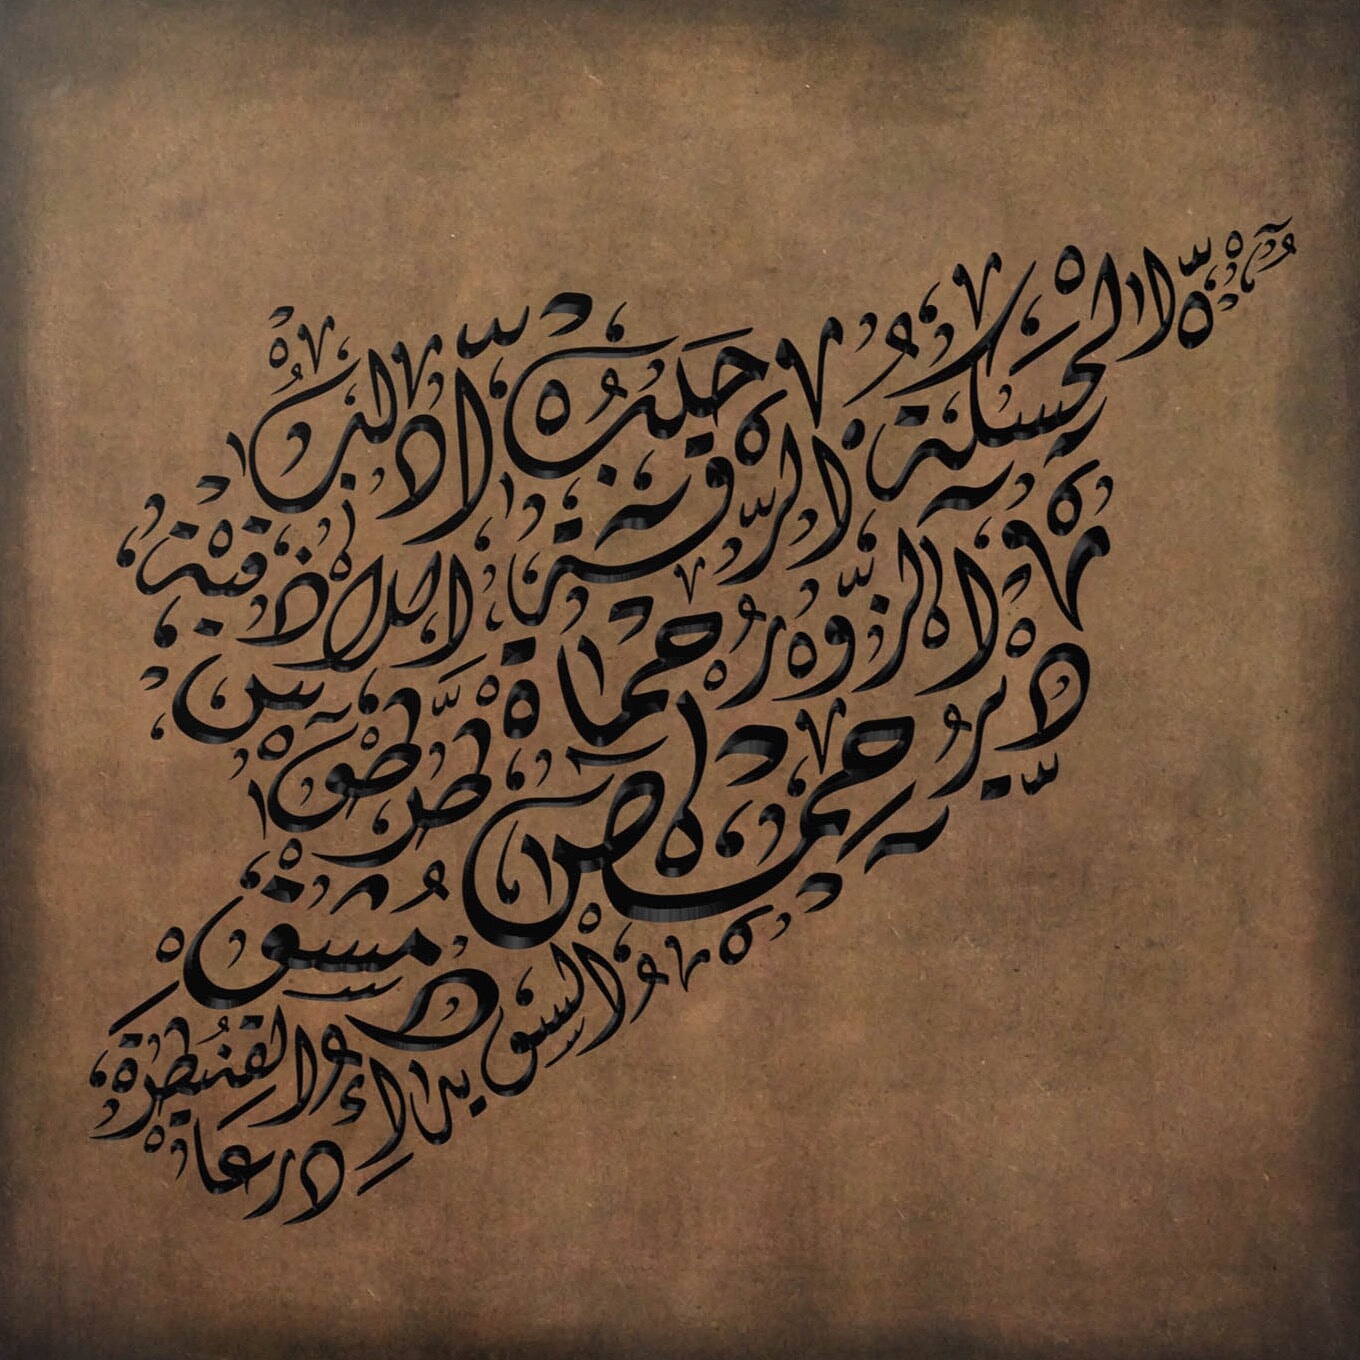 الحسكة
حلب
ادلب
الرقة
اللاذقية
دير الزور
حماة
طرطوس
حمص
دمشق
والقنيطرة
والسويداء
درعا